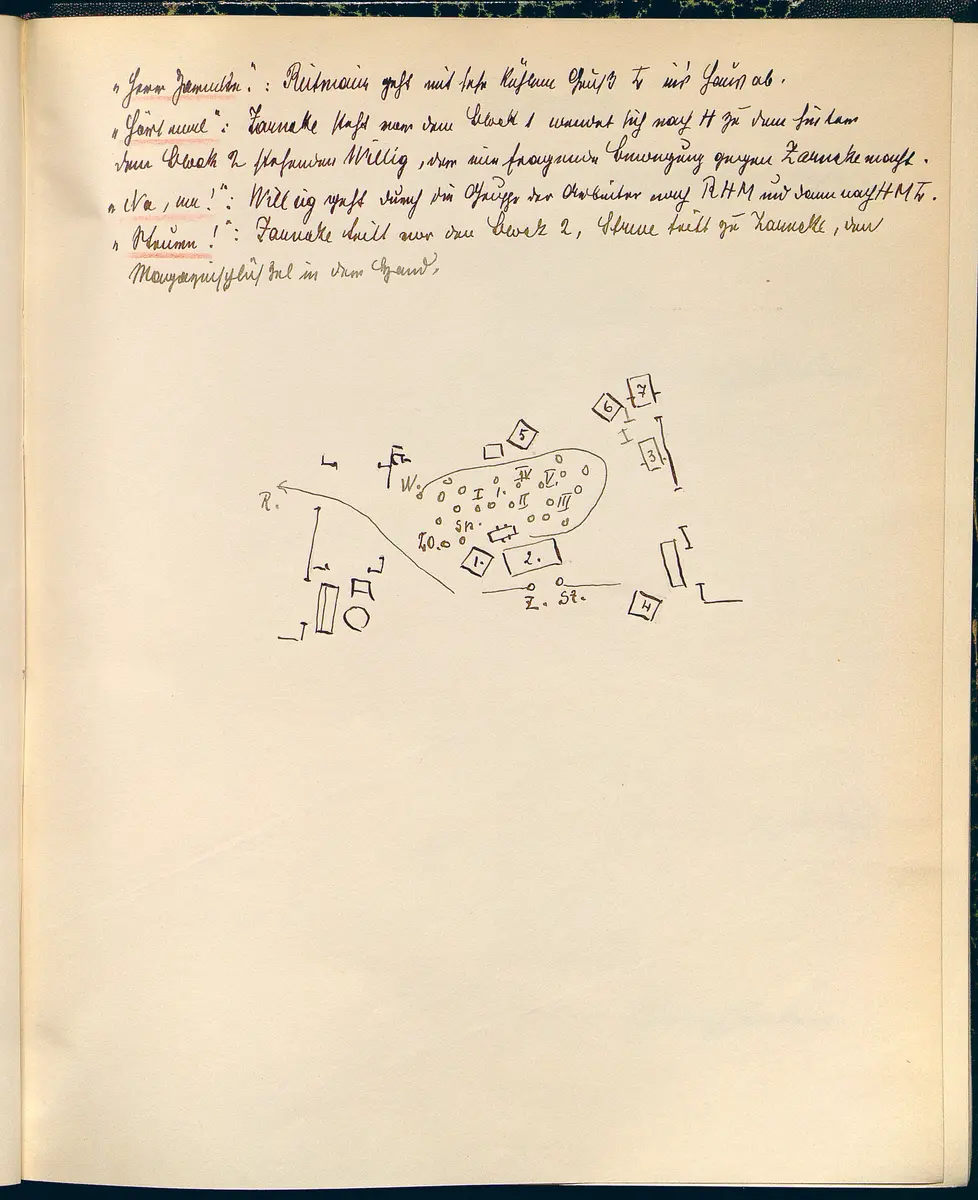 „Herr Zarncke“: Rütmann geht mit sehr kühlem Gruß I in's Haus ab.
„Hört mal“: Zarncke steht vor dem Block 1 wendet sich nach H zu dem hinter
dem Block 2 stehenden Willig, der eine fragende Bewegung gegen Zarncke macht.
„Na, na!“: Willig geht durch die Gruppe der Arbeiter nach RHM und dann nach HMI.
„Struve!“: Zarncke tritt vor den Block 2, Struve tritt zu Zarncke, den
Magazinschlüssel in der Hand.
7
6
5
3
W.
IV
V.
R.
I
1.
II
III
Sp.
1.
2.
Z. St.
4